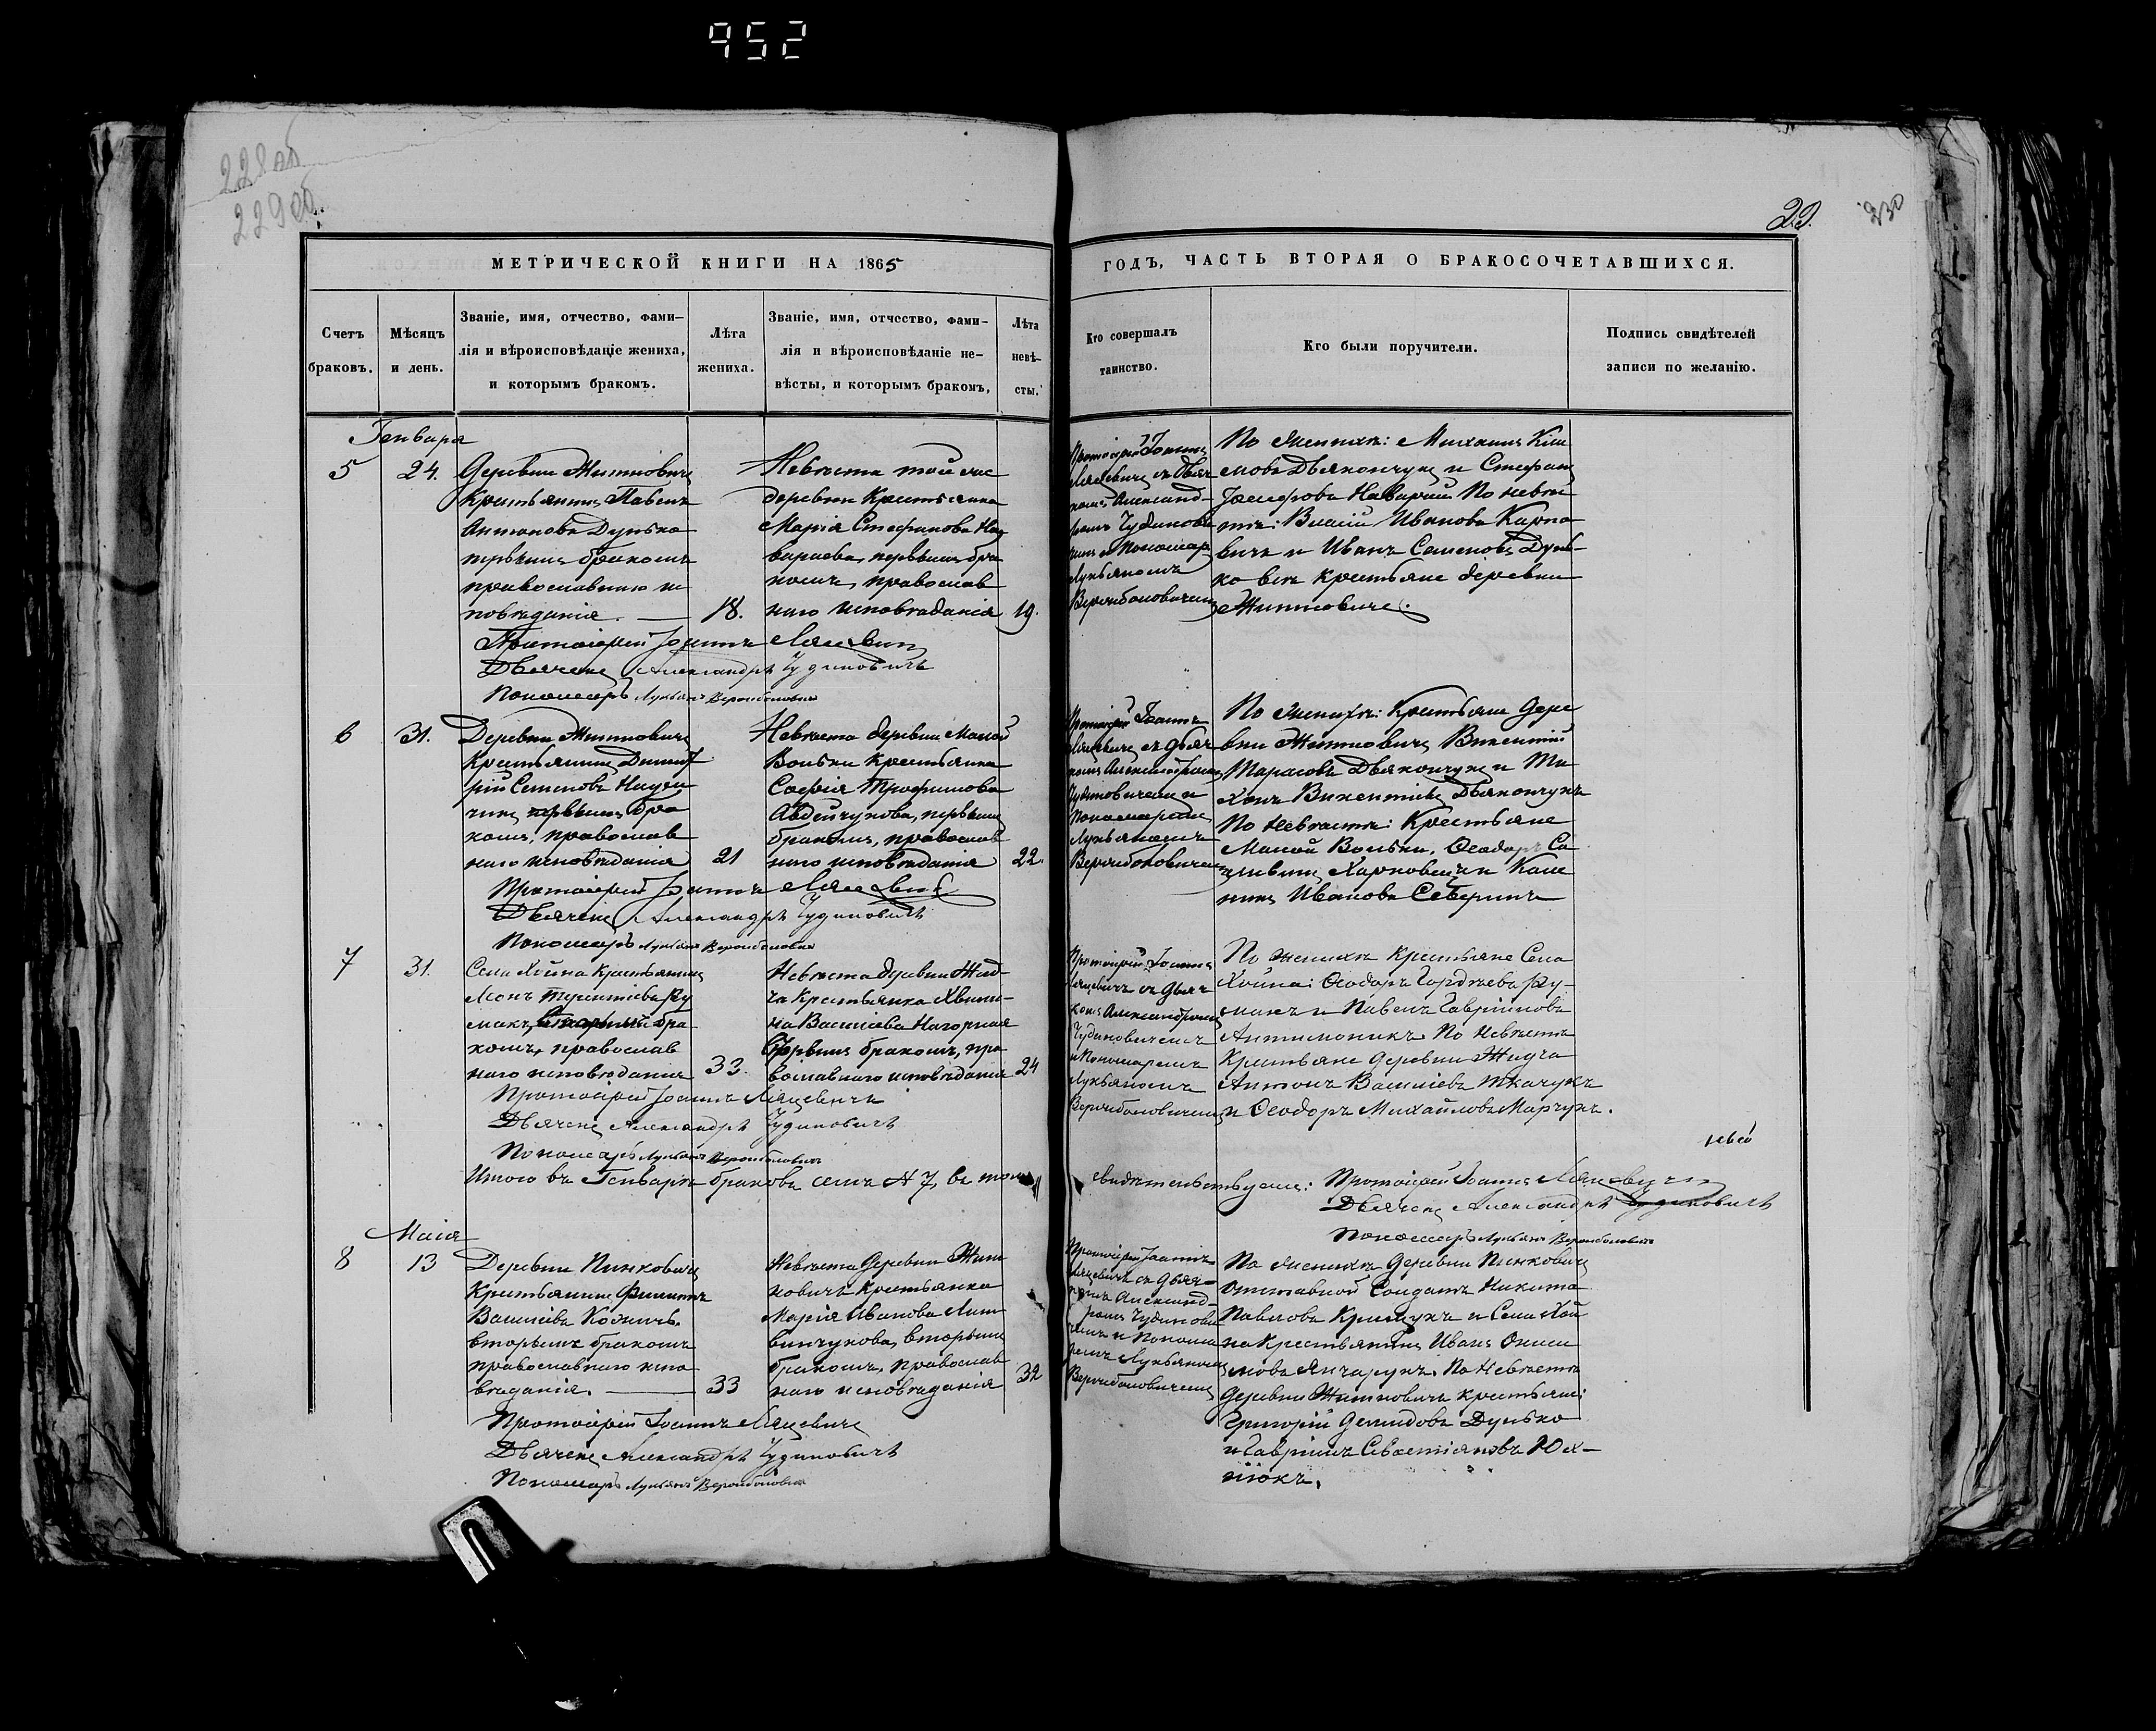 952
228об
229об
22.
230
МЕТРИЧЕСКОЙ КНИГИ НА 1865
ГОДЪ, ЧАСТЬ ВТОРАЯ О БРАКОСОЧЕТАВШИХСЯ.
Счетъ
браковъ.
Мѣсяцъ
и день.
Званіе, имя, отчество, фами-
лія и вѣроисповѣданіе жениха,
и которымъ бракомъ.
Лѣта
жениха.
Званіе, имя, отчество, фами-
лія и вѣроисповѣданіе не-
вѣсты, и которымъ бракомъ,
Лѣта
невѣ-
сты.
Кто совершалъ
таинство.
Кто были поручители.
Подпись свидѣтелей
записи по желанію.
Генваря
5
24.
Деревни Житновичъ
Крестьянинъ Павелъ
Антоновъ Дунько
первымъ бракомъ
православнаго ис
повѣданія.
18.
Невѣста той же
деревни Крестьянка
Марія Стефанова На
вараева, первымъ бра
комъ, православ
наго исповѣданія
19.
Протоіерей Іоаннъ
Ляцевичъ съ Дьяч
комъ Александ-
ромъ Чудинови
чемъ и Пономар
Лукьяномъ
Верембаловичемъ
По женихѣ: Михаилъ Кли
мовъ Дьякончукъ и Стефанъ
Іосифовъ Наварай По невѣс
тѣ: Власій Ивановъ Карпо
вичъ и Иванъ Семеновъ Дунь-
ко всѣ крестьяне деревни
Житновичъ.
Протоіерей Іоаннъ Ляцевичъ
Дьячекъ Александръ Чудиновичъ
Пономарь Лукьянъ Верембаловичъ
6
31.
Деревни Житновичъ
Крестьянинъ Димит
рій Семеновъ
первымъ бра
комъ, православ
наго исповѣданія
21
Невѣста деревни Малой
Вольки крестьянка
Софія Трофимова
Авдейчукова, первымъ
бракомъ, православ
наго исповѣданія
22.
Протоіерей Іоаннъ
Ляцевичъ съ дьяч
комъ Александромъ
Чудиновичемъ и
Пономаремъ
Лукьяномъ
Верембаловичемъ
По женихѣ: Крестьяне дере
вни Житновичъ Викентій
Тарасовъ Дьякончукъ и Ти
хонъ Викентіевъ Дьякончукъ
По невѣстѣ: Крестьяне
Малой Вольки, Ѳеодоръ Са
Харковецъ и Кали
никъ Ивановъ Северинъ
Протоіерей Іоаннъ Ляцевичъ
Дьячекъ Александръ Чудиновичъ
Пономарь Лукьянъ Верембаловичъ
7
31.
Села Хойна Крестьянинъ
Леонъ Терентіевъ Ру
макъ, бра
комъ, православ
наго исповѣданія
33.
Невѣста деревни Жид-
ча Крестьянка
на Василіева Нагорная
первымъ бракомъ, пра
вославнаго исповѣданія
24
Протоіерей Іоаннъ
Ляцевичъ съ дьяч
комъ Александромъ
Чудиновичемъ
и Пономаремъ
Лукьяномъ
Верембаловичемъ
По женихѣ Крестьяне Села
Хойна: Ѳеодоръ Гордѣевъ Ру-
макъ и Павелъ Гавриловъ
Антимоникъ. По Невѣстѣ
Крестьяне деревни Жидча
Антонъ Василіевъ Ткачукъ
и Ѳеодоръ Михайловъ Марчукъ.
Протоіерей Іоаннъ Ляцевичъ
Дьячекъ Александръ Чудиновичъ
Пономарь Лукьянъ Верембаловичъ
Итого въ Генварѣ браковъ семь № 7, въ томъ
свидѣтельствуемъ: Протоіерей Іоаннъ Ляцевичъ
Дьячекъ Александръ Чудиновичъ
Пономарь Лукьянъ Верембаловичъ
Маія
8
13
Деревни Пинковичъ
Крестьянинъ Филиппъ
Василіевъ
вторымъ бракомъ
православнаго испо
вѣданія.
33
Невѣста деревни Жит
новичъ Крестьянка
Марія Иванова Лит
винчукова, вторымъ
бракомъ, православ
наго исповѣданія
32
Протоіерей Іоаннъ
Ляцевичъ съ дьяч-
комъ Александ-
ромъ Чудинови
чемъ и Понома
ремъ Лукьяномъ
Верембаловичемъ
По женихѣ деревни Пинковичъ
отставной Солдатъ Никита
Павловъ Крищукъ и Села Хой
на Крестьянинъ Иванъ Ониси
мовъ Янчарукъ. По Невѣстѣ
деревни Житновичъ крестьяне:
Григорій Демидовъ Дунько
и Гавріилъ Севастіановъ Юх-
нюкъ.
Протоіерей Іоаннъ Ляцевичъ
Дьячекъ Александръ Чудиновичъ
Пономарь Лукьянъ Верембаловичъ